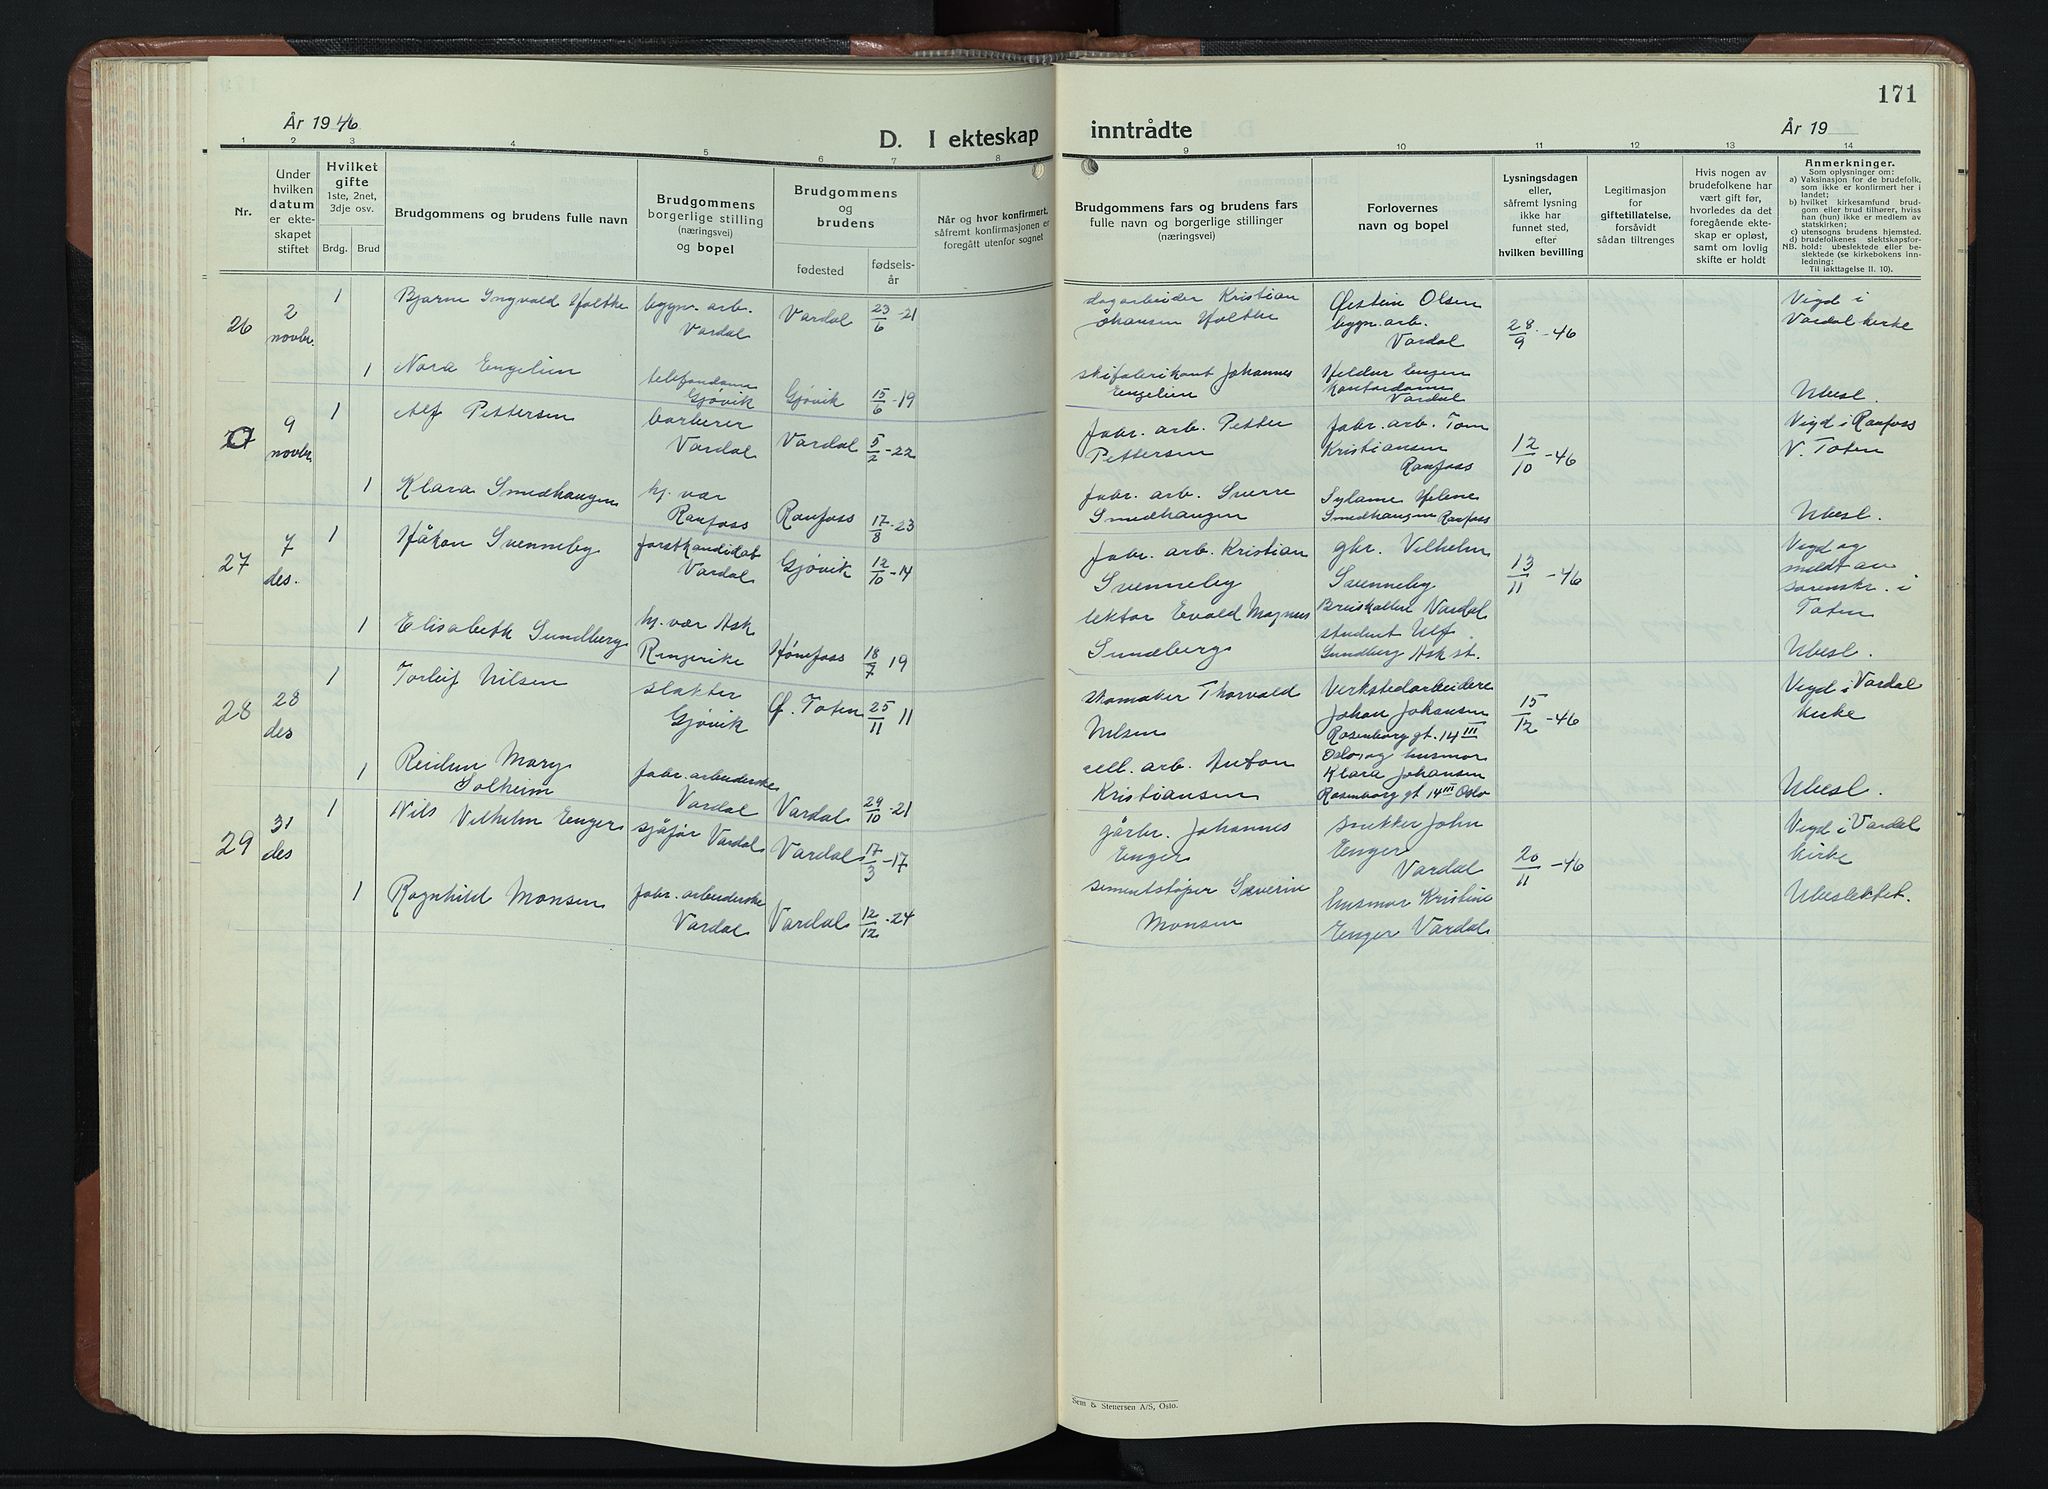 171
År 1946
D. I ekteskap inntrådte
År 19
1 2 3 4 5 6 7 8 9 10 11 12 13 14
Nr.
Under
hvilken
datum
er ekte-
skapet
stiftet
Hvilket
gifte
1ste, 2net,
3dje osv.
Brdg. Brud
Brudgommens og brudens fulle navn
Brudgommens
borgerlige stilling
(næringsvei)
og bopel
Brudgommens
og
brudens
fødested
fødsels-
år
Når og hvor konfirmert,
såfremt konfirmasjonen er
foregått utenfor sognet
Brudgommens fars og brudens fars
fulle navn og borgerlige stillinger
(næringsvei)
Forlovernes
navn og bopel
Lysningsdagen
eller,
såfremt lysning
ikke har
funnet sted,
efter
hvilken bevilling
Legitimasjon
for
giftetillatelse,
forsåvidt
sådan tiltrenges
Hvis nogen av
brudefolkene har
vært gift før,
hvorledes da det
foregående ekte-
skap er opløst,
samt om lovlig
skifte er holdt
Anmerkninger.
Som oplysninger om:
a) Vaksinasjon for de brudefolk,
som ikke er konfirmert her i
landet;
b) hvilket kirkesamfund brud-
gom eller brud tilhører, hviss
han (hun) ikke er medlem av
statskirken;
c) utensogns brudens hjemsted.
d) brudefolkenes slektskapsfor-
NB. hold: ubeslektede eller be-
slektede (se kirkebokens inn-
ledning:
Til iakttagelse II. 10).
26
2
novbr.
1
Bjarne Ingvald Holthe
bygn. arb.
Vardal
Vardal
23/6 -21
dagarbeider Kristian
Johansen Holthe
Øistein Olsen
bygn. arb.
Vardal
28/9 -46
Vigd i
Vardal kirke
1
Nora Engelien
telefondame
Gjøvik
Gjøvik
15/6 -19
skifabrikant Johannes
Engelien
Engen
kontordame
Vardal
Ubesl.
0
9
novbr.
1
Alf Pettersen
barberer
Vardal
Vardal
5/2 -22
fabr. arb. Petter
Pettersen
fabr. arb. Tom
Kristiansen
Raufoss
12/10 -46
Vigd i Raufoss
V. Toten
1
Klara Smedhaugen
hj. vær
Raufoss
Raufoss
17/8 -23
fabr. arb. Sverre
Smedhaugen
Helene
Smedhaugen Raufoss
Ubesl.
27
7
des.
1
Håkon Svenneby
forstkandidat
Vardal
Gjøvik
12/10 -14
fabr. arb. Kristian
Svenneby
gbr. Vilhelm
Svenneby
Vardal
13/11 -46
Vigd og
meldt av
sorenskr. i
Toten
1
Elisabeth Sundberg
hj. vær Ask
Ringerike
Hønefoss
18/7 19
lektor Evald Magnus
Sundberg
student Ulf
Sundberg Ask st.
Ubesl.
28
28
des
1
Torleif Nilsen
slakter
Gjøvik
Ø. Toten
25/11 11
skomaker Thorvald
Nilsen
Verkstedarbeidere
Johan Johansen
Rosenborg gt. 14 III
Oslo og husmor
Klara Johansen
Rosenborg gt 14 III Oslo
15/12 -46
Vigd i Vardal
kirke
1
Reidun Mary
Solheim
fabr. arbeiderske
Vardal
Vardal
29/10 -21
cell. arb. Anton
Kristiansen
Ubesl.
29
31
des
1
Nils Vilhelm Enger
sjåfør Vardal
Vardal
17/3 -17
gårbr. Johannes
Enger
snekker John
Enger
Vardal
20/11 -46
Vigd i Vardal
kirke
1
Ragnhild Monsen
fabr. arbeiderske
Vardal
Vardal
12/12 -24
sementstøper Severin
Monsen
husmor Kristine
Enger Vardal
Ubeslektet.
Sem & Stenersen A/S, Oslo.